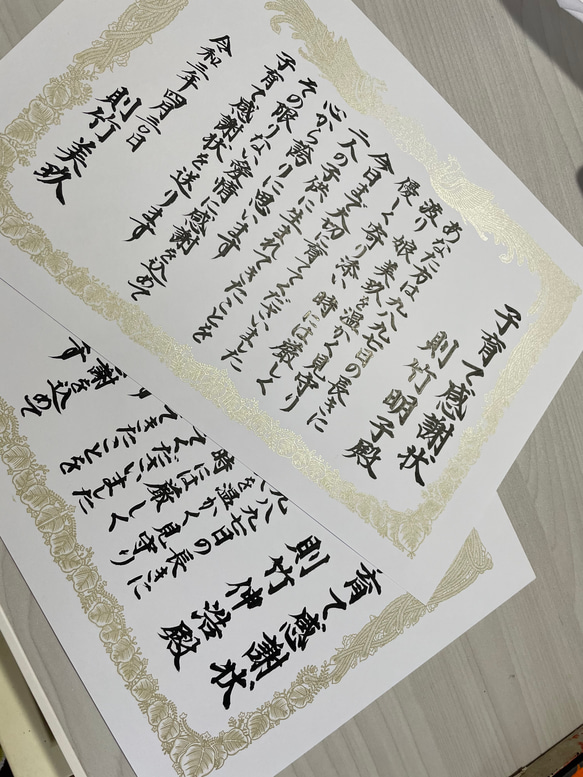 子育て感謝状
則竹明子殿
あなた方は九八九七日の長きに
渡り 娘 美玖を温かく見守り
優しく寄り添い 時には厳しく
今日まで大切に育ててくださいました
二人の子供に生まれてきたことを
心から誇りに思います
その限りない愛情に感謝を込めて
子育て感謝状を送ります
令和三年四月三〇日
則竹美玖
育て感謝状
則竹伸浩殿
九八九七日の長きに
を温かく見守り
時には厳しく
てくださいました
てきたことを
す
謝を込めて
す